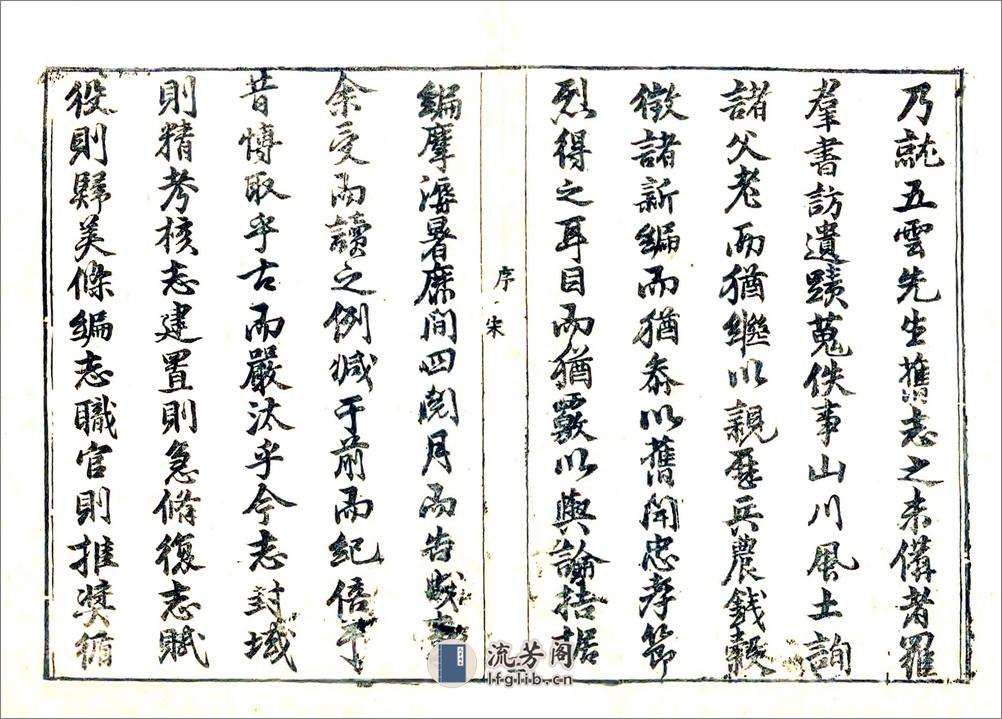 乃就五雲先生舊志之未備者羅
羣書訪遺蹟蒐佚事山川風土詢
諸父老而猶繼以親歷兵農錢穀
徵諸新編而猶叅以舊聞忠孝節
烈得之耳目而猶覈以輿論拮据
序
宋
編摩溽暑靡間四閱月而告成
余受而讀之例減于前而紀倍于
昔博取乎古而嚴汰乎今志封域
則精考核志建置則急脩復志賦
役則歸美條編志職官則推奬循
流芳阁
lfglib.cn